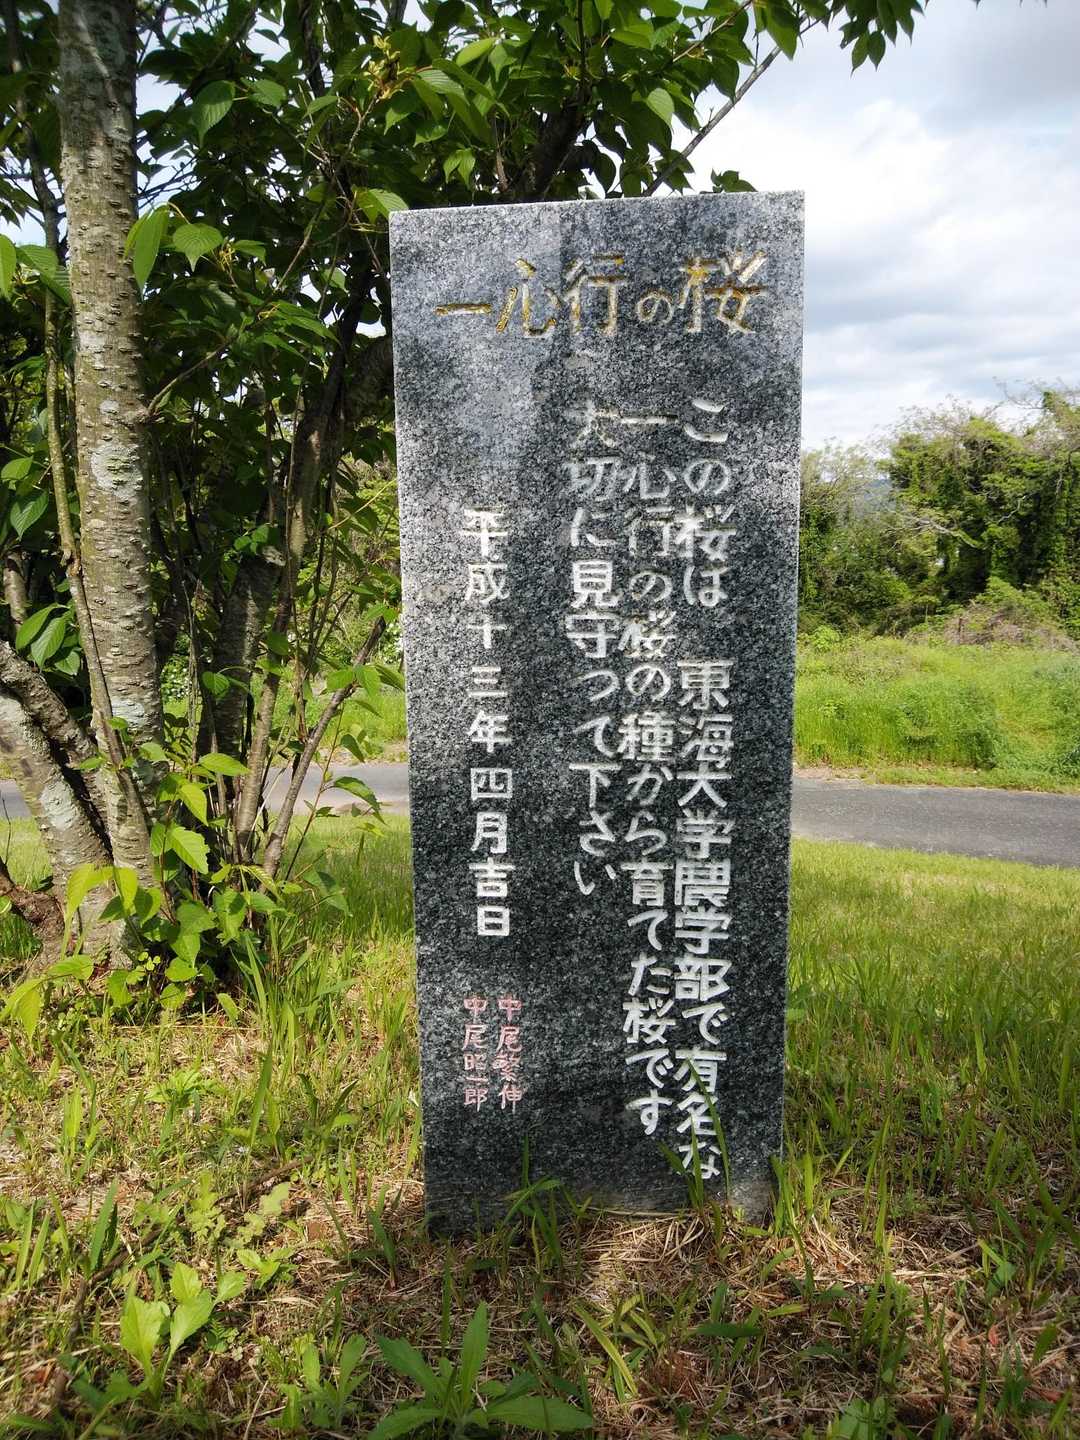 一心行の桜
この桜は 東海大学農学部で有名な
一心行の桜の種から育てた桜です
大切に見守って下さい
平成十三年四月吉日
中尾繁伸
中尾昭一郎